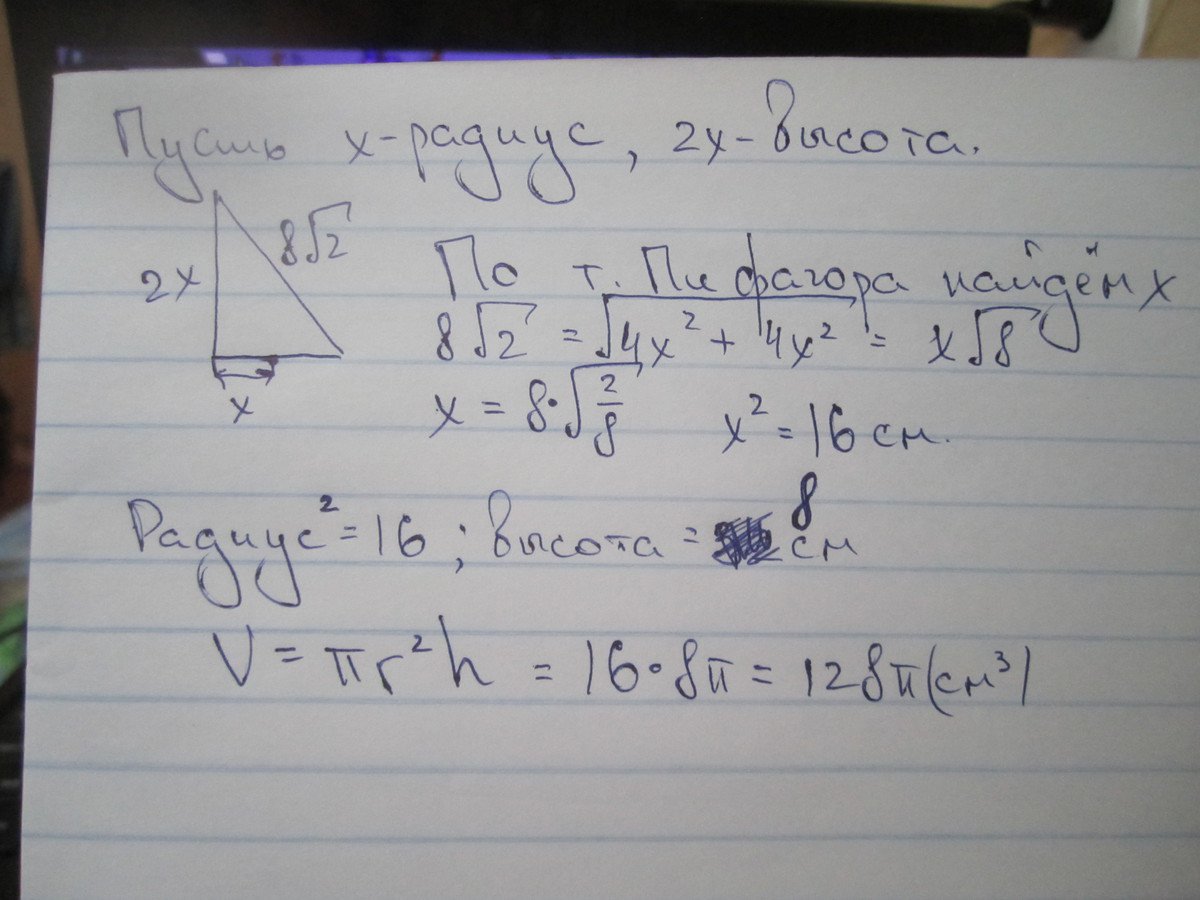 Пусть x-радиус, 2x-высота.
2x
8√2
x
По т. Пифагора найдём x
8√2 = √(4x² + 4x²) = x√8
x = 8·√(2/8)  x² = 16 см.
Радиус² = 16 ; высота = 8 см
V = πr²h = 16·8π = 128π(см³)